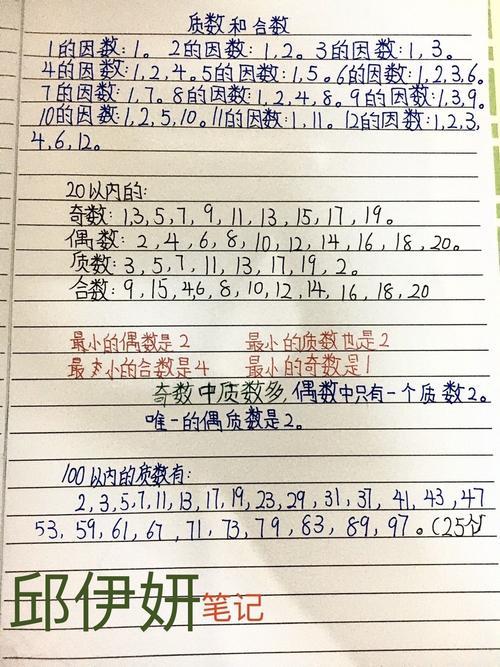 质数和合数
1的因数:1。 2的因数:1,2。3的因数:1,3。
4的因数:1,2,4。5的因数:1,5。6的因数:1,2,3,6。
7的因数:1,7。8的因数:1,2,4,8。9的因数:1,3,9。
10的因数:1,2,5,10。11的因数:1,11。12的因数:1,2,3
4,6,12。
20以内的:
奇数:1,3,5,7,9,11,13,15,17,19。
偶数:2,4,6,8,10,12,14,16,18,20。
质数:3,5,7,11,13,17,19,2。
合数:9,15,4,6,8,10,12,14,16,18,20
最小的偶数是2 最小的质数也是2
最小的合数是4 最小的奇数是1
奇数中质数多,偶数中只有一个质数2。
唯一的偶质数是2。
100以内的质数有:
2,3,5,7,11,13,17,19,23,29,31,37,41,43,47
53,59,61,67,71,73,79,83,89,97。(25个
邱伊妍笔记